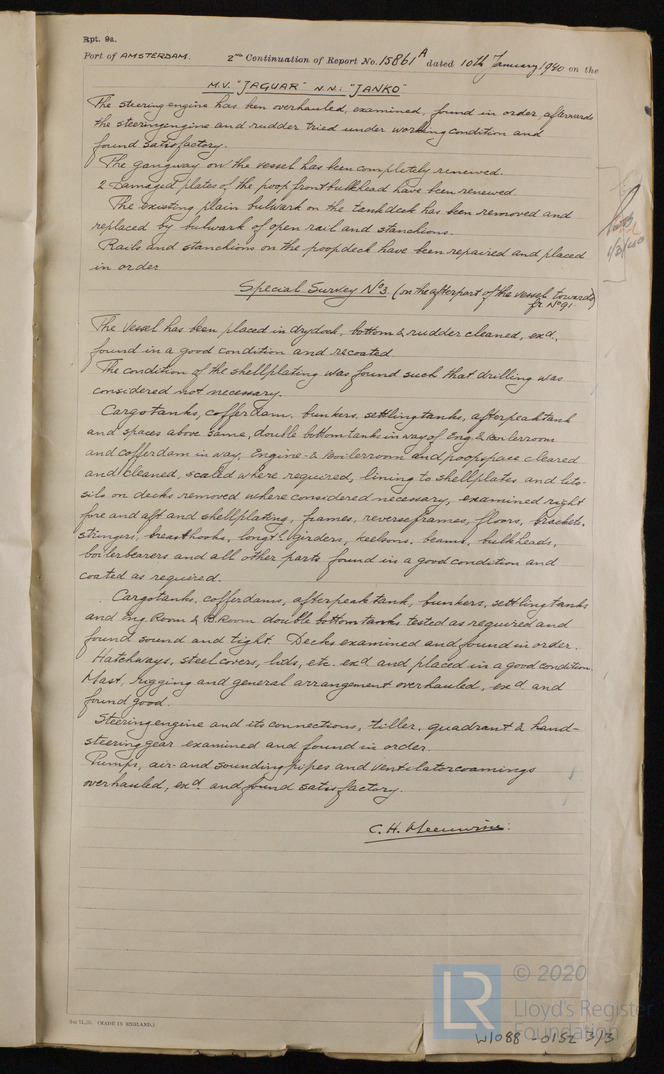 Rpt. 9a.
Port of AMSTERDAM. 2nd Continuation of Report No. 15861 A dated 10th January 1940 on the
M.V. "JAGUAR" N.N: "JANKO"
The steering engine has been overhauled, examined, found in order, afterwards
the steeringengine and rudder tried under working condition and
found satisfactory.
The gangway on the vessel has been completely renewed.
2 Damaged plates of the poop frontbulkhead have been renewed.
The existing plain bulwark on the tankdeck has been removed and
replaced by bulwark of open rail and stanchions.
Rails and stanchions on the poopdeck have been repaired and placed
in order.
Special Survey No 3. (on the afterpart of the vessel towards
fr. No 91.)
The vessel has been placed in drydock, bottom & rudder cleaned, exd.,
found in a good condition and recoated.
The condition of the shellplating was found such that drilling was
considered not necessary.
Cargotanks, cofferdam, bunkers, settlingtanks, afterpeaktank
and spaces above same, double bottomtanks in way of Eng. & Boilerroom
and cofferdam in way, Engine- & Boilerroom and poopspace cleared
and cleaned, scaled where required, lining to shellplates and lito-
silo on decks removed where considered necessary, examined right
fore and aft and shellplating, frames, reverseframes, floors, brackets,
stringers, breasthooks, longtl. girders, keelsons, beams, bulkheads,
boilerbearers and all other parts found in a good condition and
coated as required.
Cargotanks, cofferdams, afterpeaktank, bunkers, settlingtanks
and Eng. Room & B.Room double bottomtanks tested as required and
found sound and tight. Decks examined and found in order.
Hatchways, steelcovers, lids, etc. exd. and placed in a good condition.
Mast, rigging and general arrangement overhauled, exd. and
found good.
Steeringengine and its connections, tiller, quadrant & hand-
steeringgear examined and found in order.
Pumps, air- and soundingpipes and ventilatorcoamings
overhauled, exd. and found satisfactory.
C. H. Meeuwisse.
(MADE IN ENGLAND.)
© 2020
LR
Lloyd's Register
Foundation
W1088 - 0152 3/3